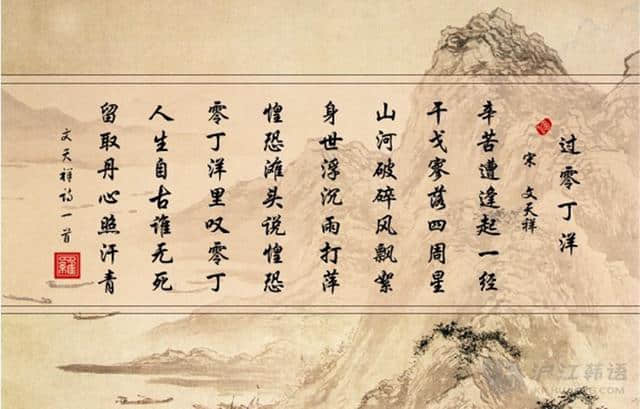 过零丁洋
宋 文天祥
辛苦遭逢起一经
干戈寥落四周星
山河破碎风飘絮
身世浮沉雨打萍
惶恐滩头说惶恐
零丁洋里叹零丁
人生自古谁无死
留取丹心照汗青
文天祥诗一首
沪江韩语
KR.HUJIANG.COM